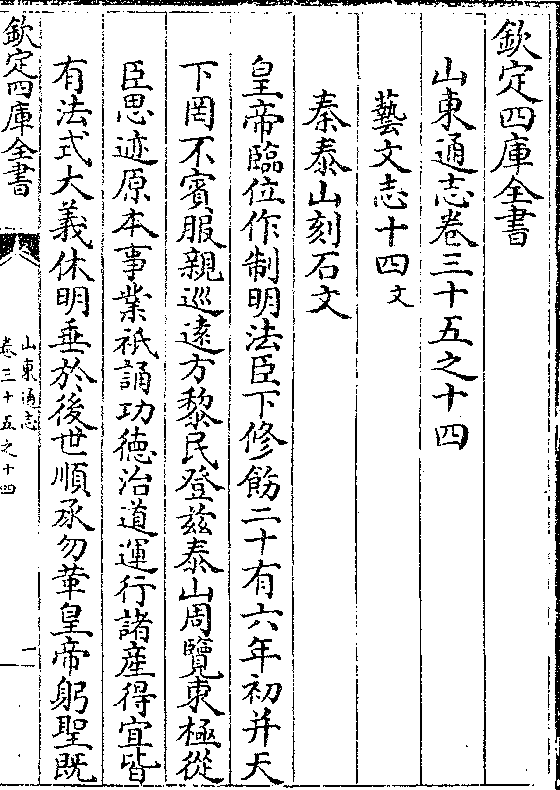 欽定四庫全書
山東通志卷三十五之十四
藝文志十四文
秦泰山刻石文
皇帝臨位作制明法臣下修飭二十有六年初并天
下罔不賓服親巡逺方黎民登兹泰山周覽東極從
臣思迹原本事業祇誦功徳治道運行諸産得宜皆
有法式大義休明垂於後世順承勿革皇帝躬聖既
欽定四庫全書
山東通志
卷三十五之十四
一